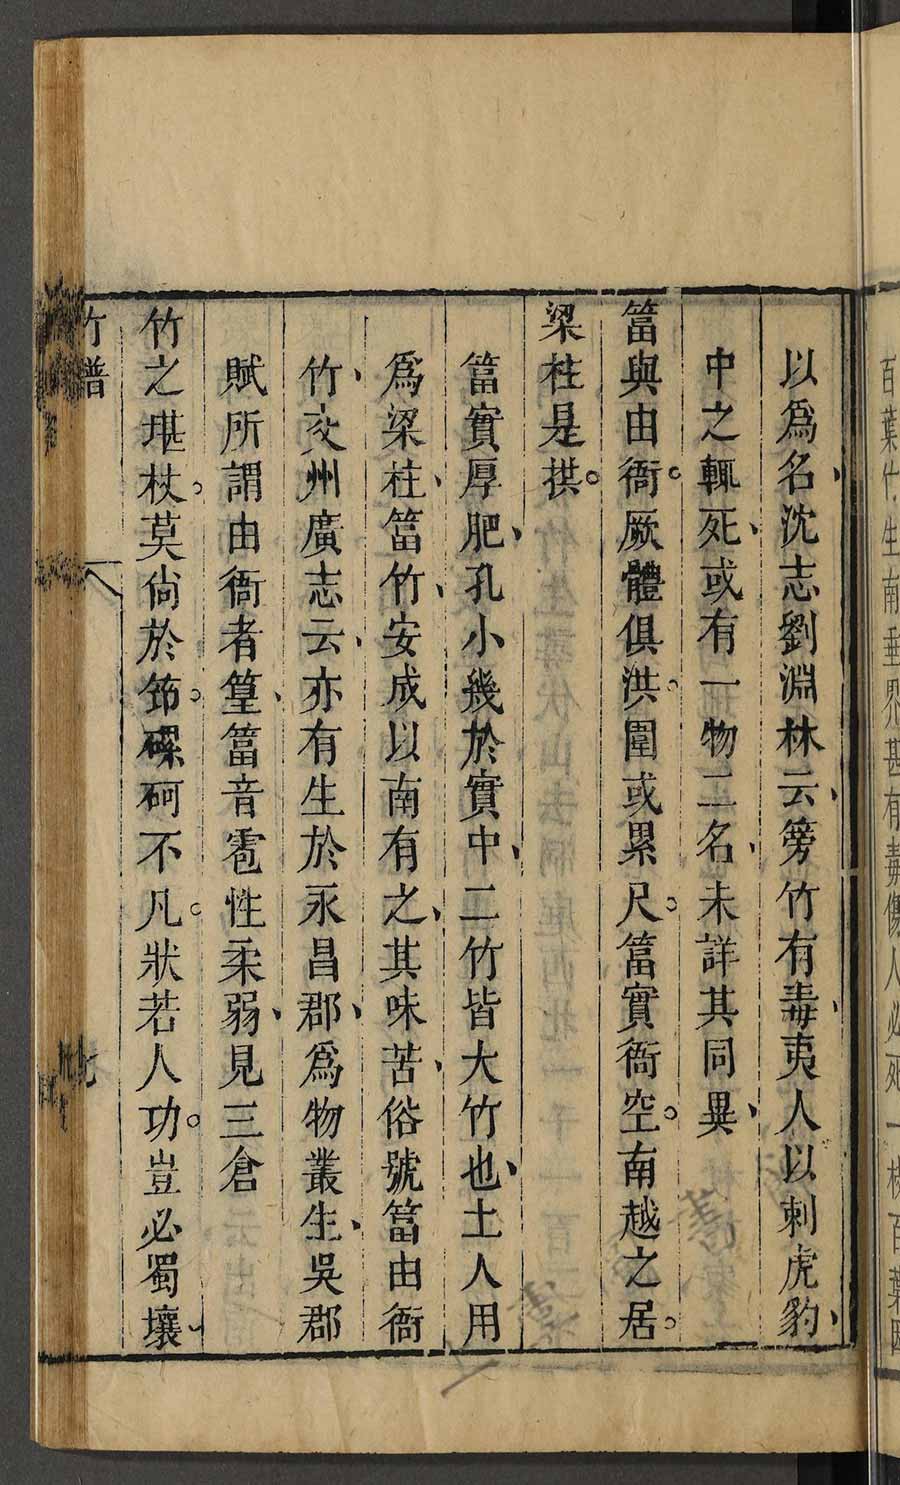 百葉竹生南垂界甚有毒傷人必死一枝百葉因
以爲名沈志劉淵林云篣竹有毒夷人以刺虎豹
中之輒死或有一物二名未詳其同異
篖與由衙厥體俱洪圍或累尺篖實衙空南越之居
梁柱是拱
篖實厚肥孔小幾於實中二竹皆大竹也土人用
爲梁柱篖竹安成以南有之其味苦俗號篖由衙
竹交州廣志云亦有生於永昌郡爲物叢生吳郡
賦所謂由衙者篁篖音雹性柔弱見三倉
竹之堪杖莫尙於筇磥砢不凡狀若人功豈必蜀壤
竹譜
七